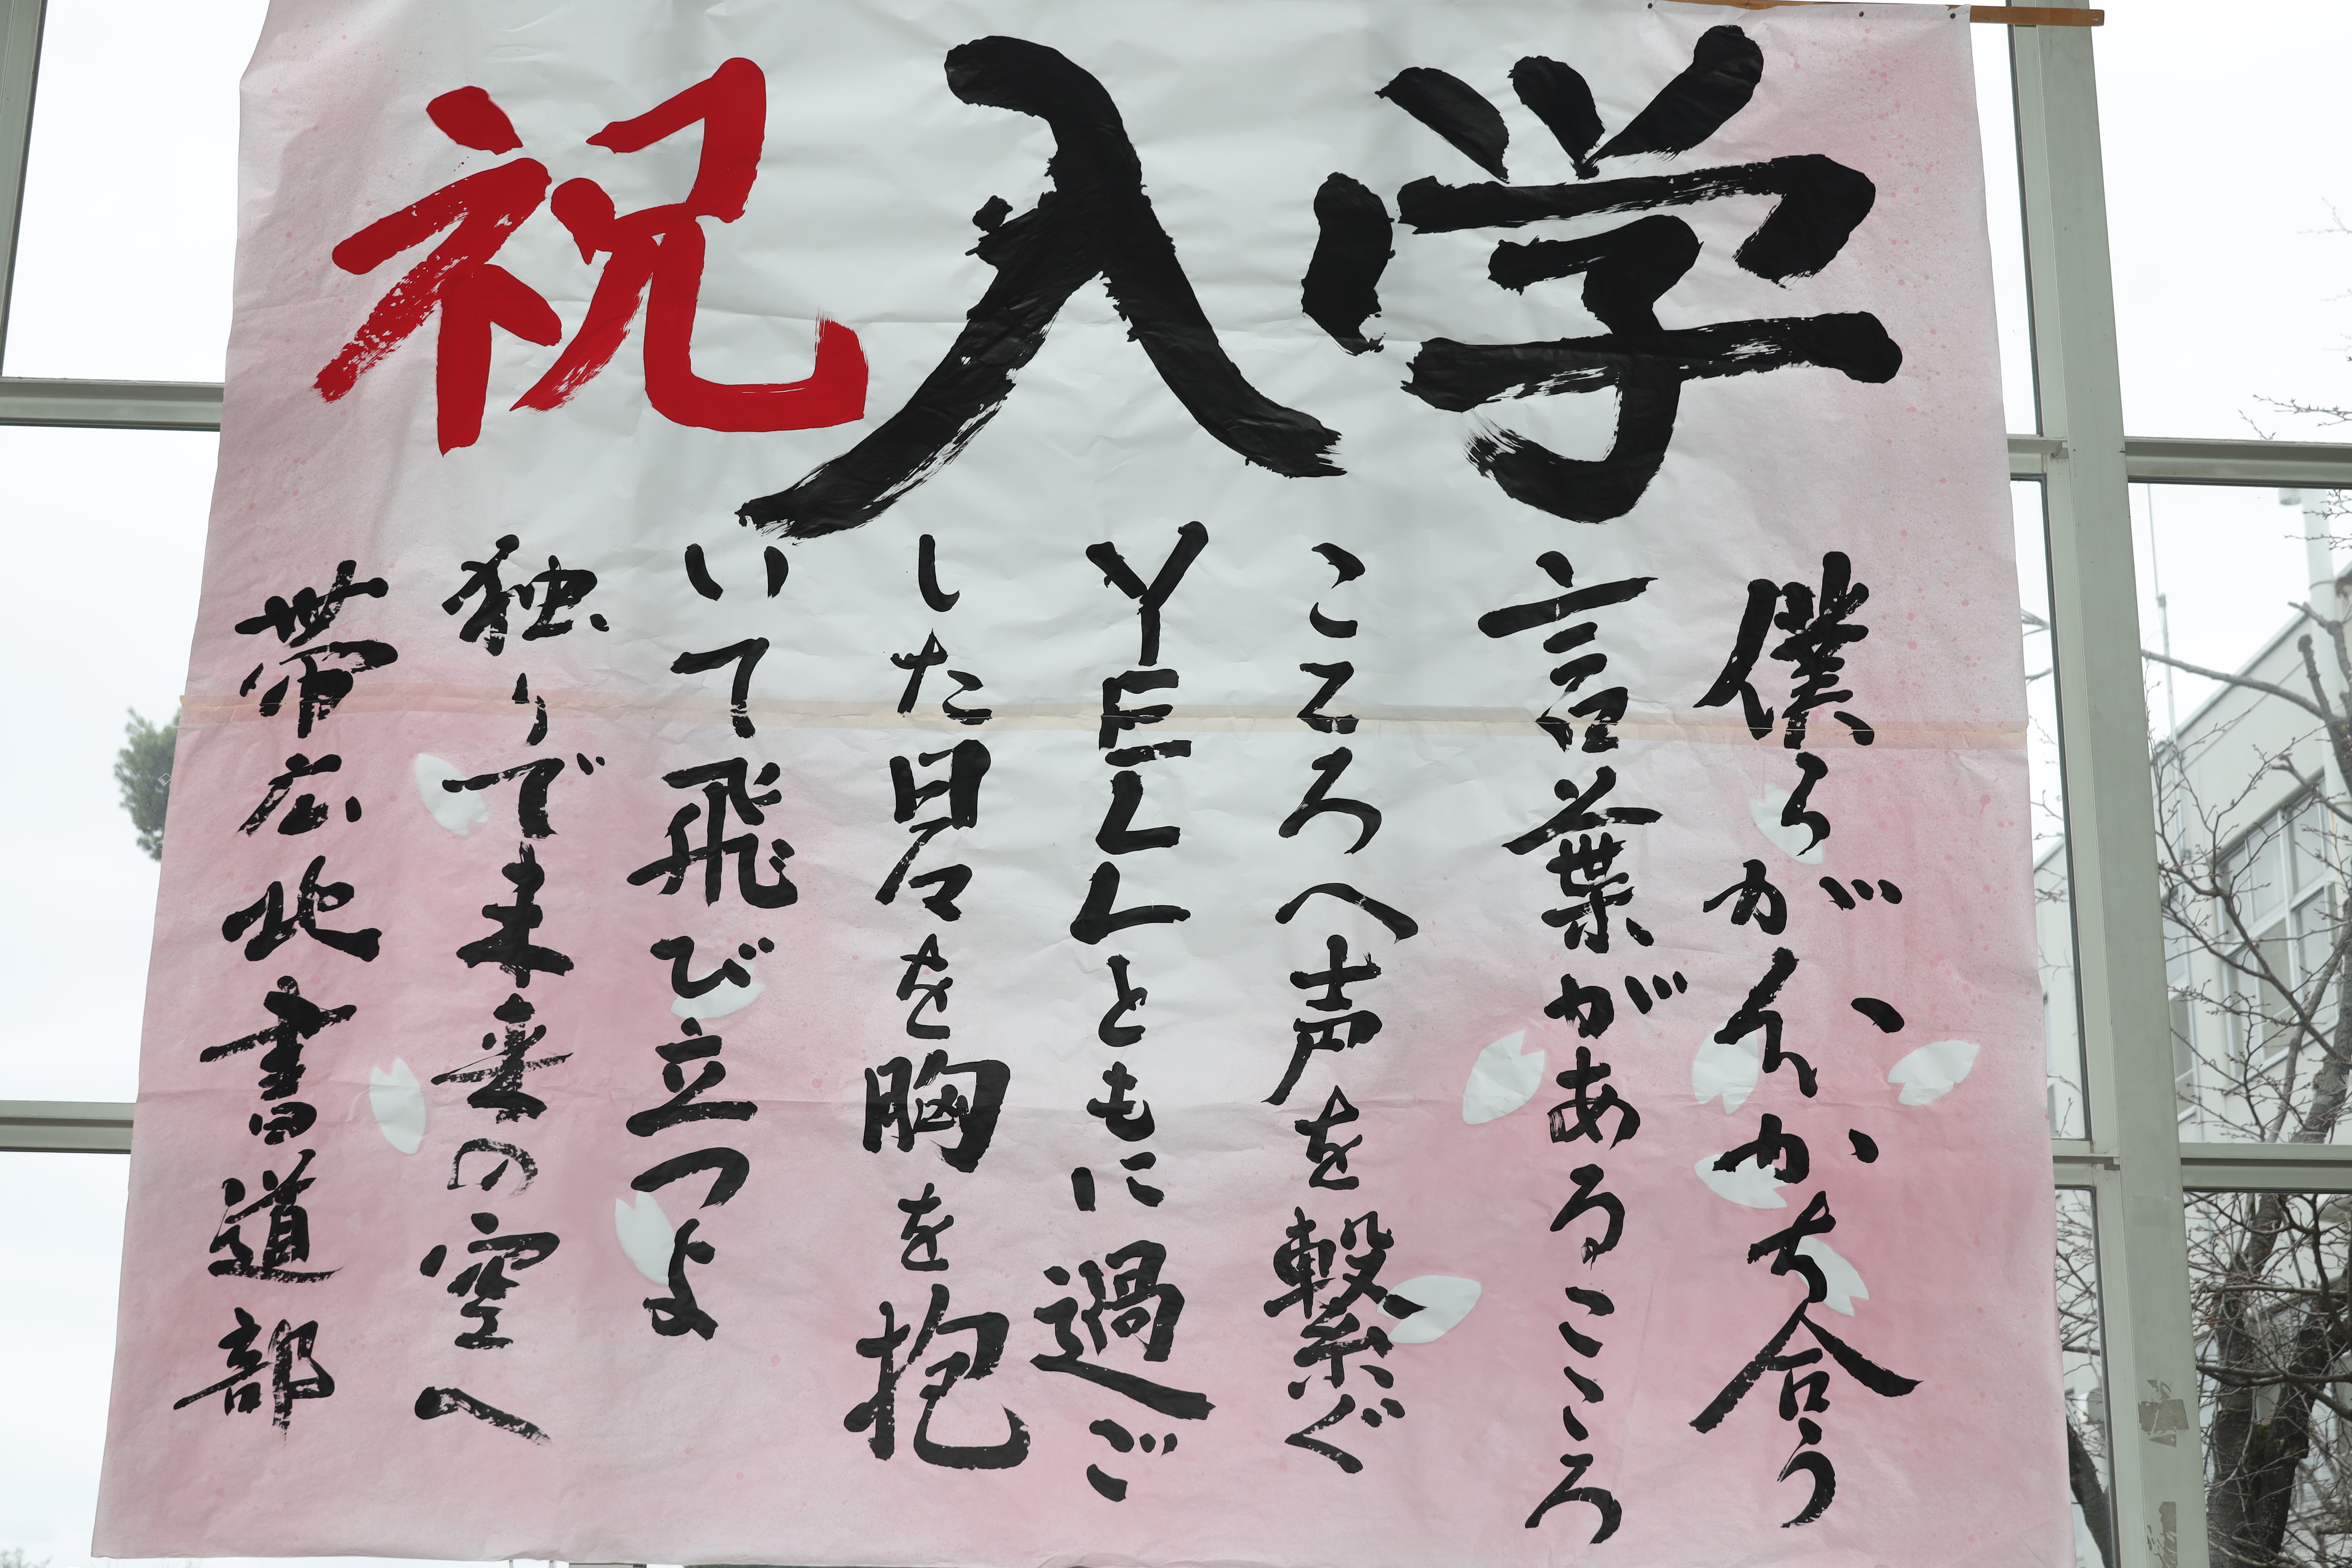 祝入学
僕らが分かち合う
言葉があるこころ
こころへ声を繋ぐ
YELLともに過ご
した日々を胸を抱
いて飛び立つよ
独りで未来の空へ
帯広北書道部